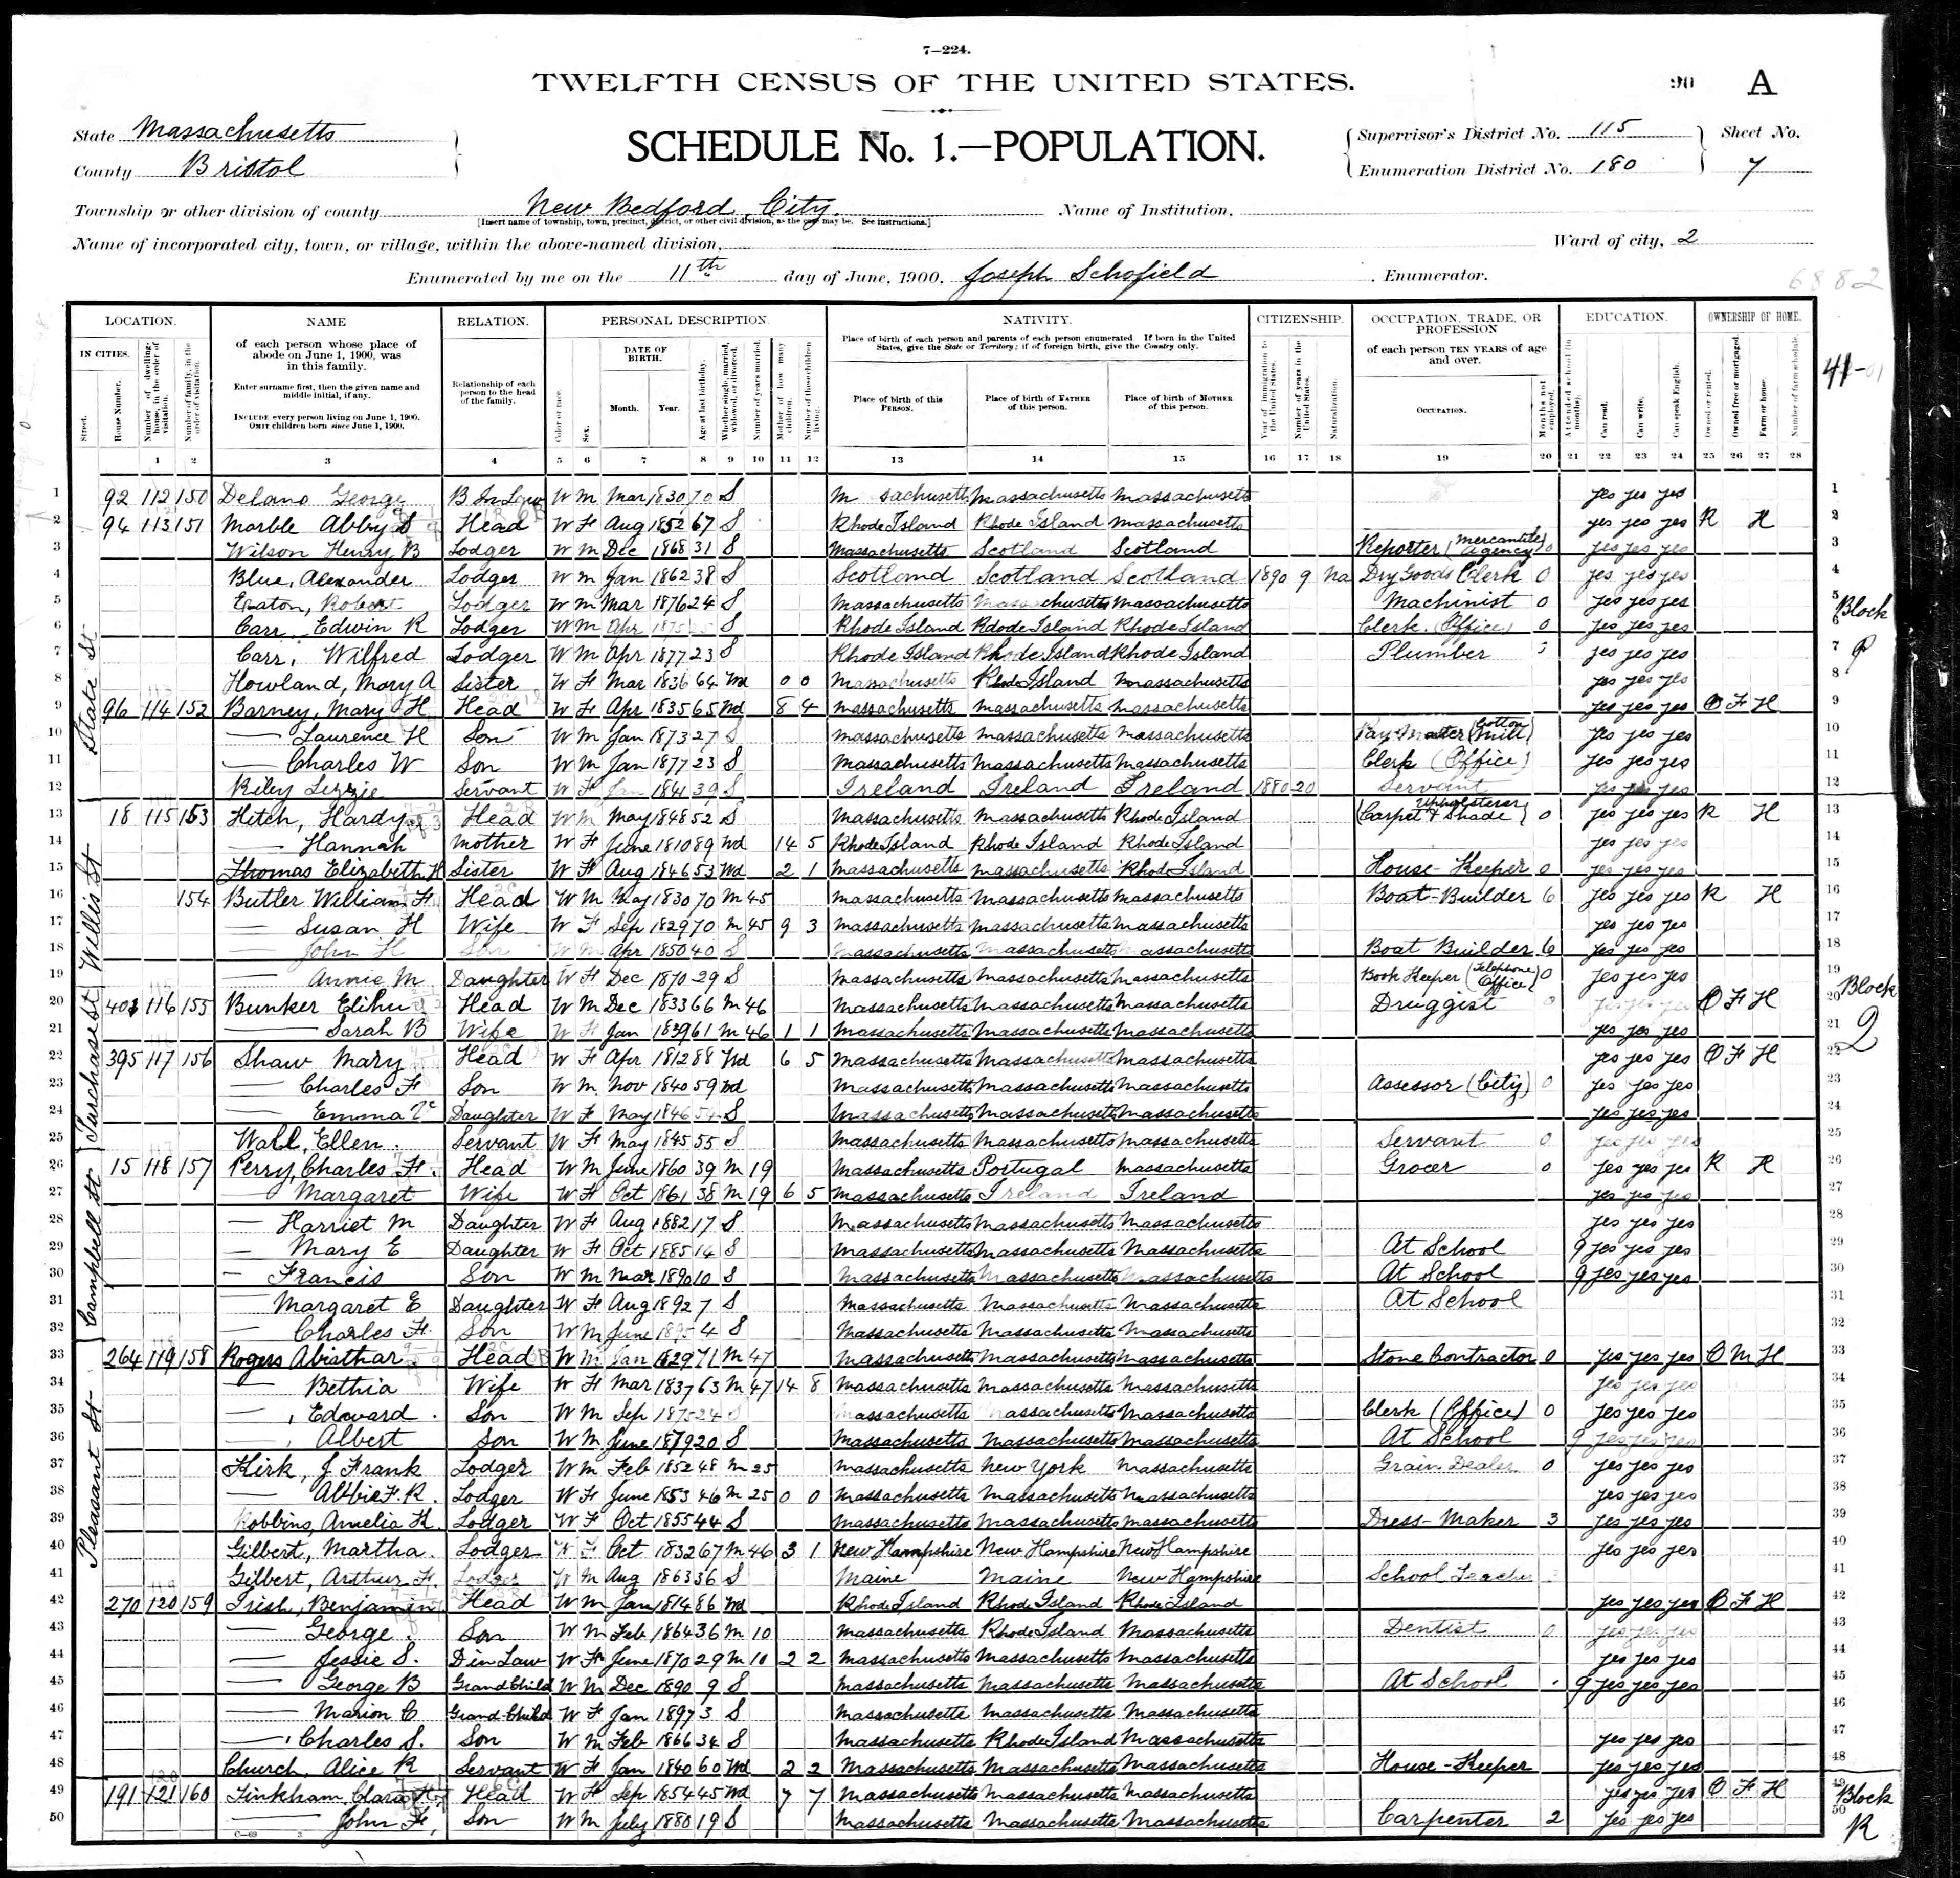 7—224.
TWELFTH CENSUS OF THE UNITED STATES.
90 A
State Massachusetts
County Bristol
SCHEDULE No. 1.—POPULATION.
Supervisor's District No. 115 Sheet No.
Enumeration District No. 180 7
Township or other division of county New Bedford City Name of Institution,
[Insert name of township, town, precinct, district, or other civil division, as the case may be. See instructions.]
Name of incorporated city, town, or village, within the above-named division, Ward of city, 2
Enumerated by me on the 11th day of June, 1900, Joseph Schofield, Enumerator.
6882
LOCATION. NAME RELATION. PERSONAL DESCRIPTION. NATIVITY. CITIZENSHIP. OCCUPATION, TRADE, OR PROFESSION EDUCATION. OWNERSHIP OF HOME.
IN CITIES. Street. House Number. Number of dwelling-house, in the order of visitation. Number of family, in the order of visitation.
of each person whose place of abode on June 1, 1900, was in this family.
Enter surname first, then the given name and middle initial, if any.
INCLUDE every person living on June 1, 1900.
OMIT children born since June 1, 1900.
Relationship of each person to the head of the family.
Color or race. Sex. DATE OF BIRTH. Month. Year. Age at last birthday. Whether single, married, widowed, or divorced. Number of years married. Mother of how many children. Number of these children living.
Place of birth of each person and parents of each person enumerated. If born in the United States, give the State or Territory; if of foreign birth, give the Country only.
Place of birth of this PERSON. Place of birth of FATHER of this person. Place of birth of MOTHER of this person.
Year of immigration to the United States. Number of years in the United States. Naturalization.
of each person TEN YEARS of age and over.
OCCUPATION. Months not employed.
Attended school (in months). Can read. Can write. Can speak English.
Owned or rented. Owned free or mortgaged. Farm or house. Number of farm schedule.
1 2 3 4 5 6 7 8 9 10 11 12 13 14 15 16 17 18 19 20 21 22 23 24 25 26 27 28
State St
1 92 112 150 Delano George B In Law W M Mar 1830 70 S M sachusetts Massachusetts Massachusetts yes yes yes 1
2 94 113 151 Marble Abby S Head W F Aug 1852 67 S Rhode Island Rhode Island Massachusetts yes yes yes R H 2
3 Wilson Henry B Lodger W M Dec 1868 31 S Massachusetts Scotland Scotland Reporter (Mercantile Agency) 0 yes yes yes 3
4 Blue, Alexander Lodger W M Jan 1862 38 S Scotland Scotland Scotland 1890 9 Na Dry Goods Clerk 0 yes yes yes 4
5 Eaton, Robert Lodger W M Mar 1876 24 S Massachusetts Massachusetts Massachusetts Machinist 0 yes yes yes 5
Block
6 Carr, Edwin R Lodger W M Apr 1875 25 S Rhode Island Rdode Island Rhode Island Clerk (Office) 0 yes yes yes 6
7 Carr, Wilfred Lodger W M Apr 1877 23 S Rhode Island Rhode Island Rhode Island Plumber yes yes yes 7
8 Howland, Mary A Sister W F Mar 1836 64 Wd 0 0 Massachusetts Rhode Island Massachusetts yes yes yes 8
9 96 114 152 Barney, Mary H Head W F Apr 1835 65 Wd 8 4 Massachusetts Massachusetts Massachusetts yes yes yes O F H 9
10 — Laurence H Son W M Jan 1873 27 S Massachusetts Massachusetts Massachusetts Pay Master (Cotton Mill) yes yes yes 10
11 — Charles W Son W M Jan 1877 23 S Massachusetts Massachusetts Massachusetts Clerk (Office) yes yes yes 11
12 Riley Lizzie Servant W F Jan 1841 39 S Ireland Ireland Ireland 1880 20 Servant yes yes yes 12
Willis St
13 18 115 153 Hitch, Hardy Head W M May 1848 52 S Massachusetts Massachusetts Rhode Island (Upholsterer Carpet & Shade) 0 yes yes yes R H 13
14 — Hannah Mother W F June 1810 89 Wd 14 5 Rhode Island Rhode Island Rhode Island yes yes yes 14
15 Thomas Elizabeth H Sister W F Aug 1846 53 Wd 2 1 Massachusetts Massachusetts Rhode Island House-Keeper 0 yes yes yes 15
16 154 Butler William F Head W M May 1830 70 M 45 Massachusetts Massachusetts Massachusetts Boat-Builder 6 yes yes yes R H 16
17 — Susan H Wife W F Sep 1829 70 M 45 9 3 Massachusetts Massachusetts Massachusetts yes yes yes 17
18 — John H Son W M Apr 1850 40 S Massachusetts Massachusetts Massachusetts Boat Builder 6 yes yes yes 18
19 — Annie M Daughter W F Dec 1870 29 S Massachusetts Massachusetts Massachusetts Book Keeper (Telephone Office) 0 yes yes yes 19
Purchase St
Block 2
20 403 116 155 Bunker Elihu Head W M Dec 1833 66 M 46 Massachusetts Massachusetts Massachusetts Druggist 0 yes yes yes O F H 20
21 — Sarah B Wife W F Jan 1839 61 M 46 1 1 Massachusetts Massachusetts Massachusetts yes yes yes 21
22 395 117 156 Shaw Mary Head W F Apr 1812 88 Wd 6 5 Massachusetts Massachusetts Massachusetts yes yes yes O F H 22
23 — Charles F Son W M Nov 1840 59 Wd Massachusetts Massachusetts Massachusetts Assessor (City) 0 yes yes yes 23
24 — Emma Daughter W F May 1846 54 S Massachusetts Massachusetts Massachusetts yes yes yes 24
25 Wall, Ellen Servant W F May 1845 55 S Massachusetts Massachusetts Massachusetts Servant 0 yes yes yes 25
Campbell St
26 15 118 157 Perry, Charles F. Head W M June 1860 39 M 19 Massachusetts Portugal Massachusetts Grocer 0 yes yes yes R H 26
27 — Margaret Wife W F Oct 1861 38 M 19 6 5 Massachusetts Ireland Ireland yes yes yes 27
28 — Harriet M Daughter W F Aug 1882 17 S Massachusetts Massachusetts Massachusetts yes yes yes 28
29 — Mary E Daughter W F Oct 1885 14 S Massachusetts Massachusetts Massachusetts At School 9 yes yes yes 29
30 — Francis Son W M Mar 1890 10 S Massachusetts Massachusetts Massachusetts At School 9 yes yes yes 30
31 Margaret E Daughter W F Aug 1892 7 S Massachusetts Massachusetts Massachusetts At School 31
32 — Charles F. Son W M June 1895 4 S Massachusetts Massachusetts Massachusetts 32
Pleasant St
33 264 119 158 Rogers Abiathar Head W M Jan 1829 71 M 47 Massachusetts Massachusetts Massachusetts Stone Contractor 0 yes yes yes O M H 33
34 — Bethia Wife W F Mar 1837 63 M 47 14 8 Massachusetts Massachusetts Massachusetts yes yes yes 34
35 — Edward Son W M Sep 1875 24 S Massachusetts Massachusetts Massachusetts Clerk (Office) 0 yes yes yes 35
36 — Albert Son W M June 1879 20 S Massachusetts Massachusetts Massachusetts At School 9 yes yes yes 36
37 Kirk, J Frank Lodger W M Feb 1852 48 M 25 Massachusetts New York Massachusetts Grain Dealer 0 yes yes yes 37
38 — Abbie F. R. Lodger W F June 1853 46 M 25 0 0 Massachusetts Massachusetts Massachusetts yes yes yes 38
39 Robbins, Amelia H. Lodger W F Oct 1855 44 S Massachusetts Massachusetts Massachusetts Dress-Maker 3 yes yes yes 39
40 Gilbert, Martha Lodger W F Oct 1832 67 M 46 3 1 New Hampshire New Hampshire New Hampshire yes yes yes 40
41 Gilbert, Arthur H. Lodger W M Aug 1863 36 S Maine Maine New Hampshire School Teacher 41
42 270 120 159 Irish, Benjamin Head W M Jan 1814 86 Wd Rhode Island Rhode Island Rhode Island yes yes yes O F H 42
43 — George Son W M Feb 1864 36 M 10 Massachusetts Rhode Island Massachusetts Dentist 0 yes yes yes 43
44 — Jessie S. D in Law W F June 1870 29 M 10 2 2 Massachusetts Massachusetts Massachusetts yes yes yes 44
45 — George B Grand Child W M Dec 1890 9 S Massachusetts Massachusetts Massachusetts At School 9 yes yes yes 45
46 — Marion C Grand-Child W F Jan 1897 3 S Massachusetts Massachusetts Massachusetts 46
47 — Charles S. Son W M Feb 1866 34 S Massachusetts Rhode Island Massachusetts yes yes yes 47
48 Church, Alice R Servant W F Jan 1840 60 Wd 2 2 Massachusetts Massachusetts Massachusetts House-Keeper yes yes yes 48
49 191 121 160 Tinkham, Clara Head W F Sep 1854 45 Wd 7 7 Massachusetts Massachusetts Massachusetts yes yes yes O F H 49
Block R
50 — John F, Son W M July 1880 19 S Massachusetts Massachusetts Massachusetts Carpenter 2 yes yes yes 50